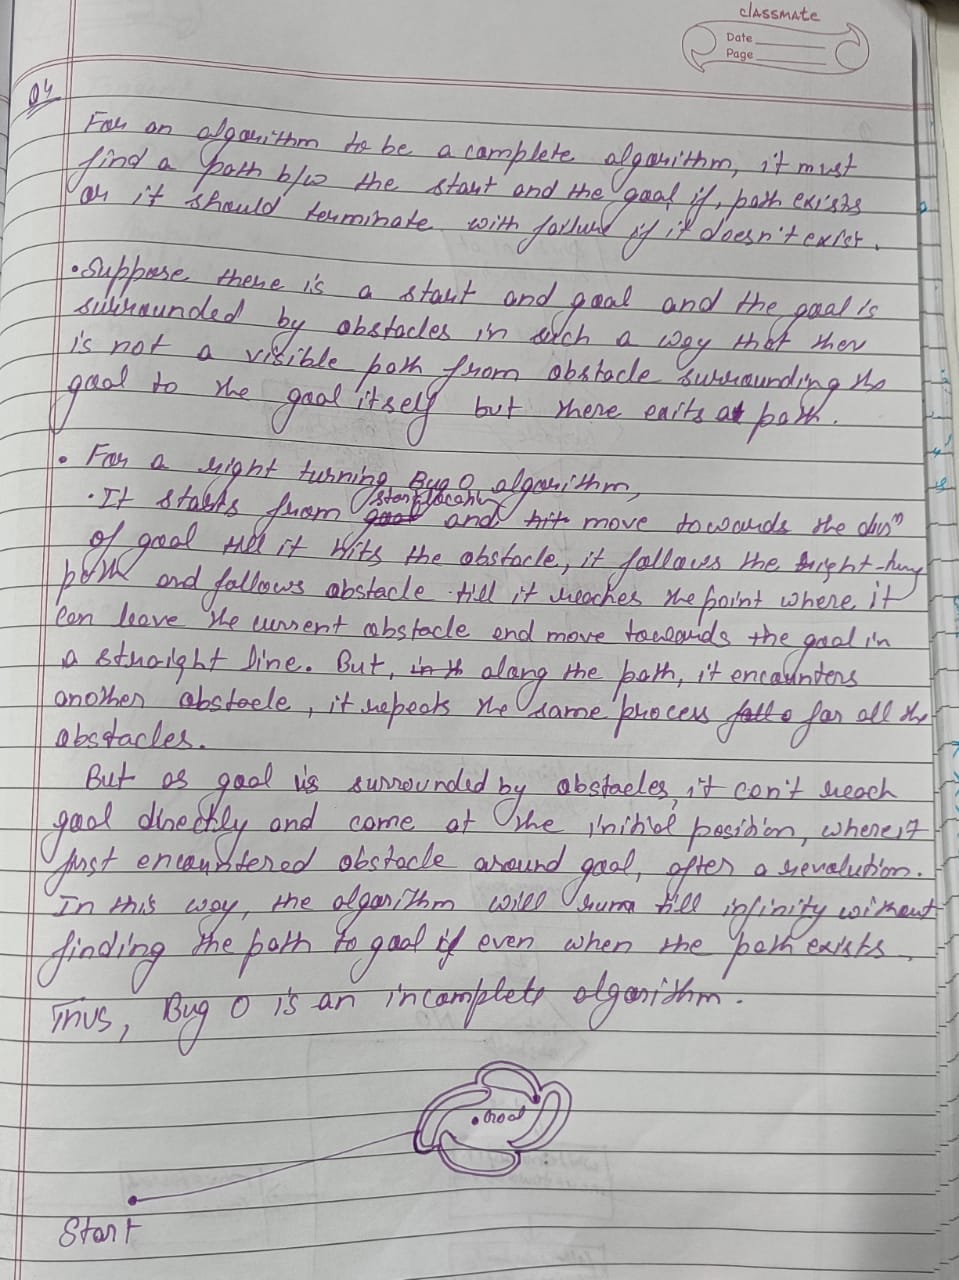 classmate
Date
Page
Q4
For an algorithm to be a complete algorithm, it must
find a path b/w the start and the goal if, path exists
or it should terminate with failure if it doesn't exist.
• Suppose there is a start and goal and the goal is
surrounded by obstacles in such a way that ther
is not a visible path from obstacle surrounding the
goal to the goal itself but there exits a path.
• For a right turning Bug 0 algorithm,
• It starts from start location and move towards the dirn
of goal till it hits the obstacle, it follows the right
path and follows obstacle till it reaches the point where it
can leave the current obstacle and move towards the goal in
a straight line. But, along the path, it encounters
another obstacle, it repeats the same process for all the
obstacles.
But as goal is surrounded by obstacles, it can't reach
goal directly and come at the initial position, where it
first encountered obstacle around goal, after a revolution.
In this way, the algorithm will till infinity without
finding the path to goal even when the path exists.
Thus, Bug 0 is an incomplete algorithm.
Goal
Start